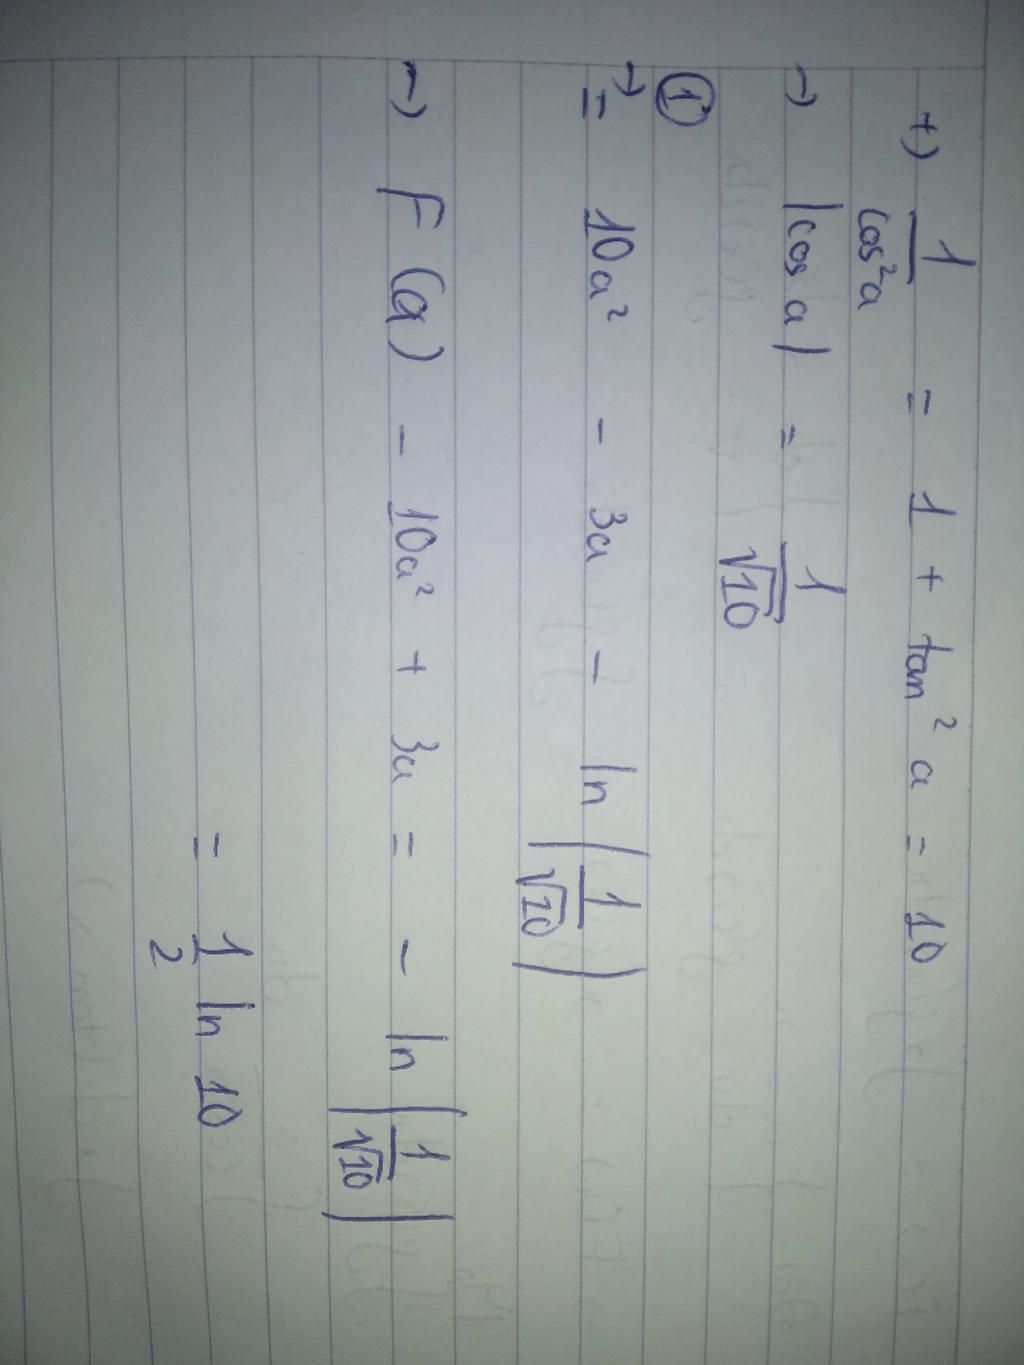 +) 1/cos²a = 1 + tan²a = 10
→ |cos a| = 1/√10
①
→ = 10a² - 3a - ln |1/√10|
→ F(a) - 10a² + 3a = - ln |1/√10|
= 1/2 ln 10